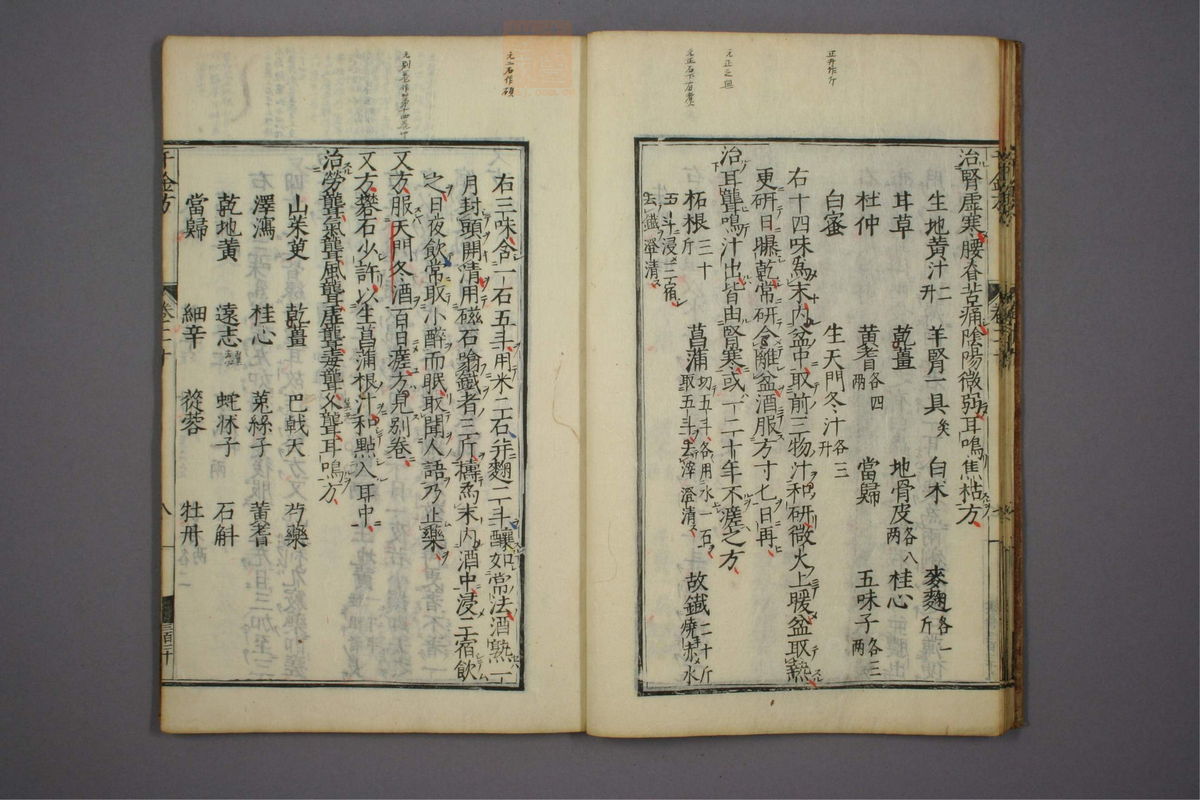 治腎虛寒腰脊苦痛陰陽微弱耳鳴焦枯方
生地黃汁二升 羊腎一具炙 白朮 麥麴各一斤
耳草 乾薑 地骨皮各八兩 桂心
杜仲 黃耆各四兩 當歸 五味子各三兩
白蜜 生天門冬汁各三升
右十四味為末內盆中取前三物汁和研微火上暖盆取熱
更研日曝乾常研令離盆酒服方寸匕日再
治耳聾鳴汁出皆由腎寒或一二十年不瘥之方
柘根三十斤 菖蒲切五斗各用水一石取五斗去滓澄清 故鐵二十斤燒赤水
五斗浸三宿去鐵澄清
右三味合一石五斗用米二石并麴二斗釀如常法酒熟一
月封頭開清用磁石吸鐵者三斤擣為末內酒中浸三宿飲
之日夜飲常取小醉而眠取聞人語乃止藥
又方服天門冬酒百日瘥方見別卷
又方礬石少許以生菖蒲根汁和點入耳中
治勞聾氣聾風聾虛聾毒聾久聾耳鳴方
山茱萸 乾薑 巴戟天 芍藥
澤瀉 桂心 菟絲子 黃耆
乾地黃 遠志 蛇牀子 石斛
當歸 細辛 蓯蓉 牡丹
千金方
卷二十
八